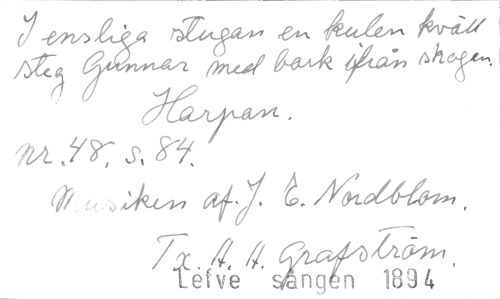 I ensliga stugan en kulen kväll
steg Gunnar med bark ifrån skogen.
Harpan.
nr. 48, s. 84.
Musiken af. J. E. Nordblom.
Tx. A. A. Grafström.
Lefve sången 1894